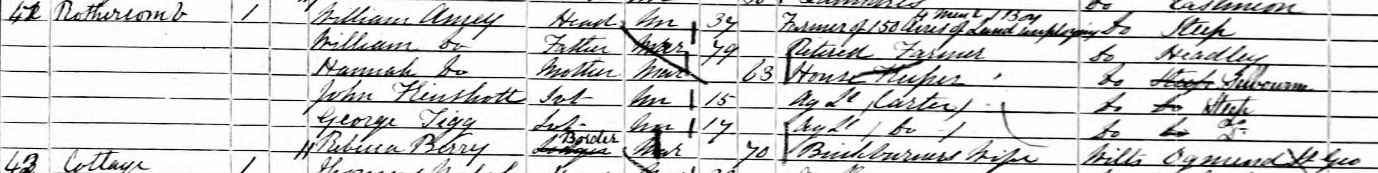 42 Rothercomb 1 William Amey Head Un 37 Farmer of 150 Acres of Land employing 4 Men 1 Boy do Steep
William Do Father Mar 79 Retired Farmer do Headley
Hannah Do Mother Mar 63 House Keeper do Steep
John Flinshott Svt Un 15 Ag Lr (Carter) do do Steep
George Tigg Svt Un 17 Ag Lr (Do) do do Do
Berry Border Mar 70 Wife Wilts St Geo
43 Cottage 1